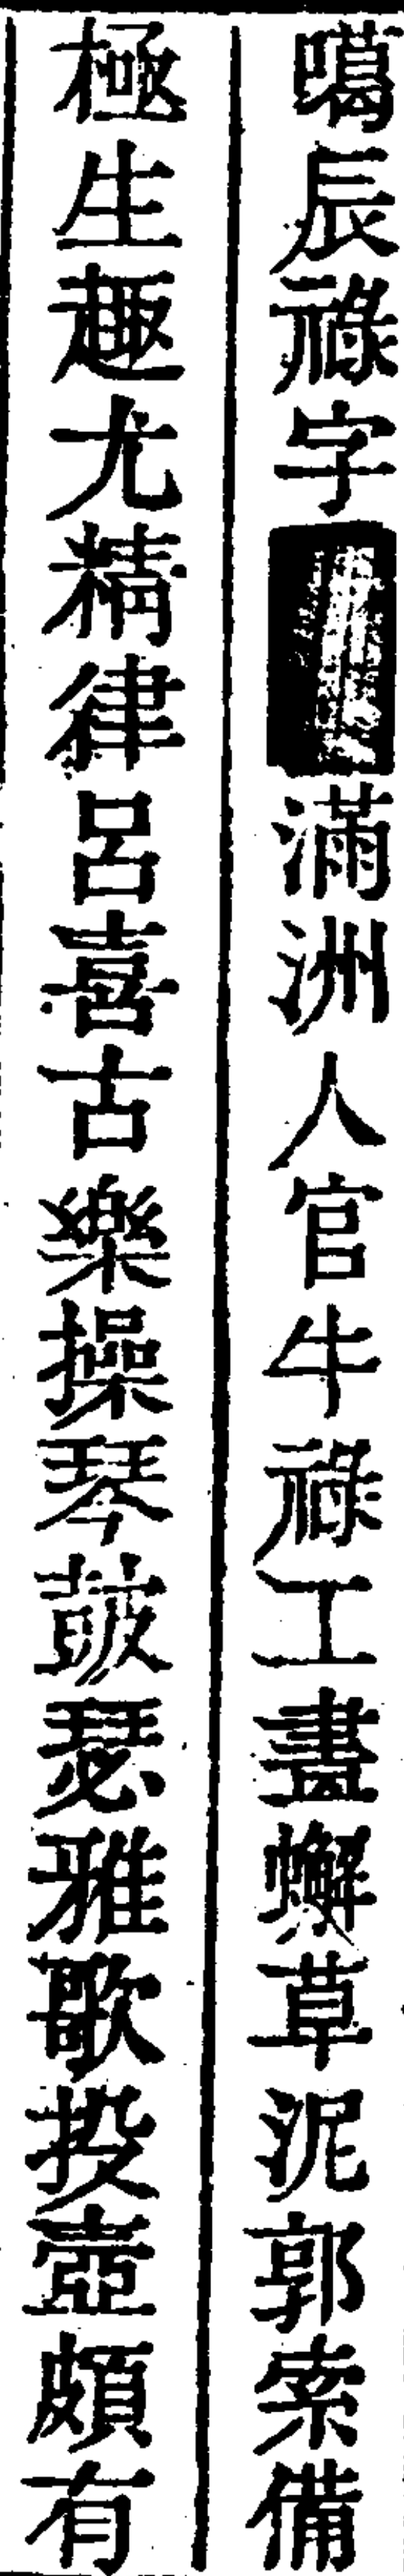 噶辰祿字滿洲人官牛祿工畫蠏草泥郭索備
極生趣尤精律呂喜古樂操琴鼓瑟雅歌投壺頗有